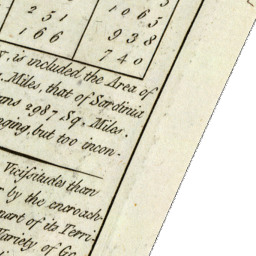 2 5 1 1 0 6 5
1 6 6 9 3 8
7 4 0
, is included the Area of
Miles, that of Sardinia
2987 Sq. Miles.
but too incon-
Vicissitudes than
by the encroach-
of its Terri-
Variety of Go